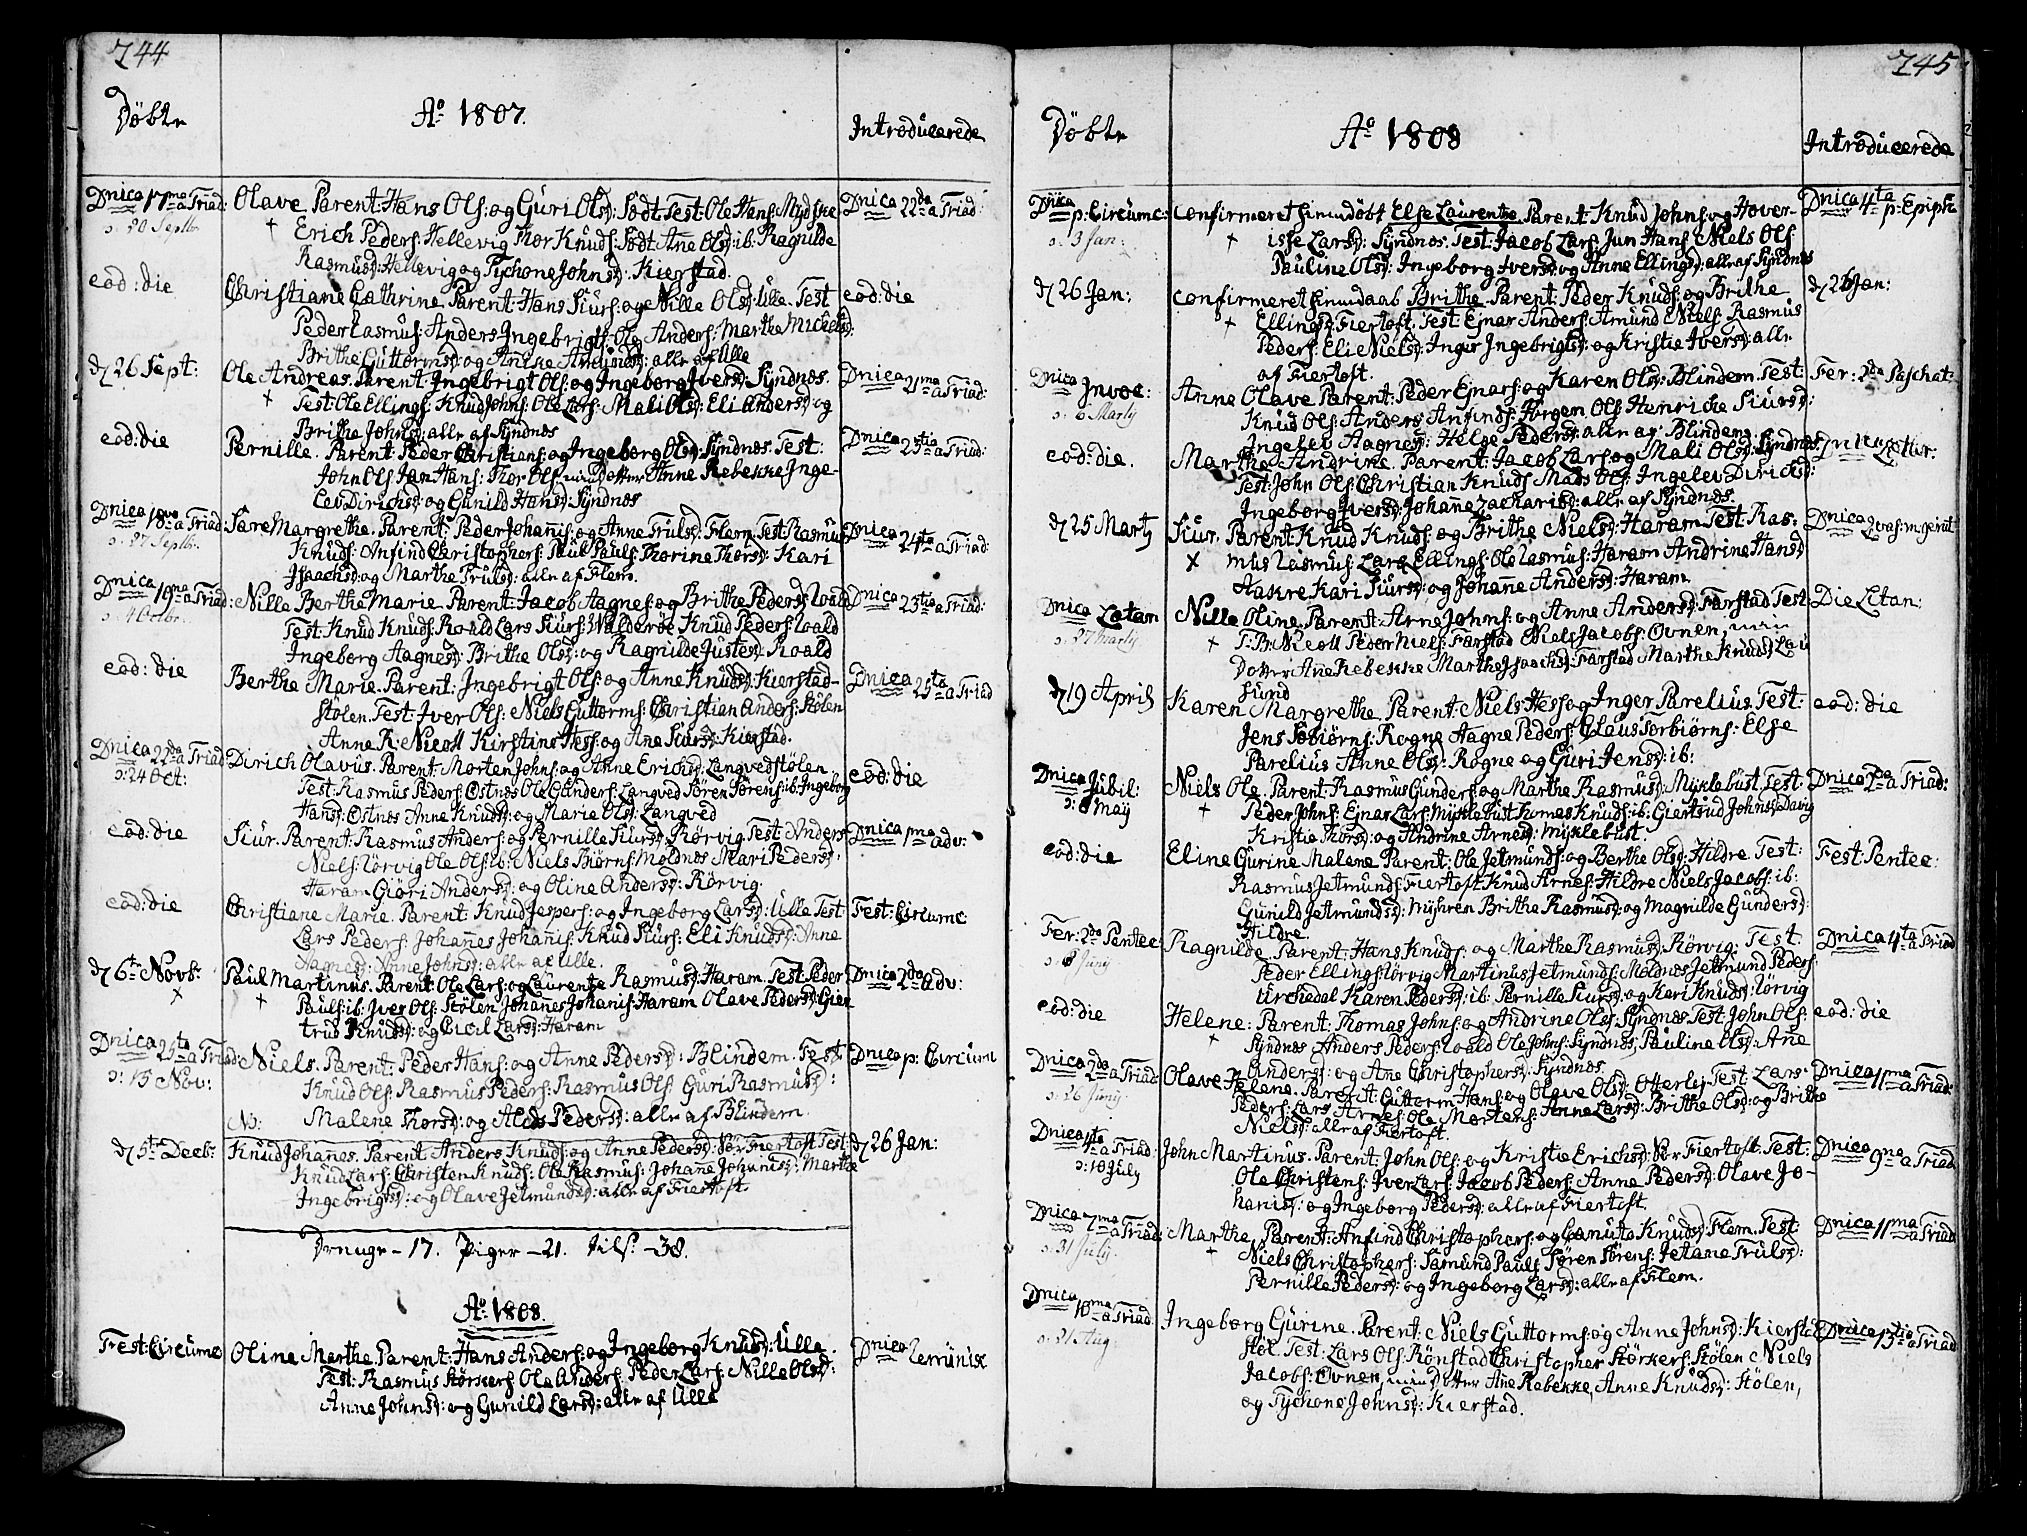 244
Døbte
Aº 1807.
Introducerede
Dnica 17ma a Triad:
ɔ: 20 Septbr.
Olave. Parent: Hans Ols: og Guri Olsd: Södt. Test: Ole Hans:
Erich Peders: Hellevig Thor Knuds: Södt. Anne Olsd: ib: Ragnilde
Rasmusd: Hellevig og Tychone Johnsd: Kierstad.
Dnica 22da a Triad:
eod: die
Christiane Cathrine. Parent: Hans Siurs: og Nille Olsd: Ulla. Test
Peder Rasmus: Anders Ingebrigts: Ole Anders: Marthe Michelsd:
Brithe Guttormsd: og Anne Amundsd: alle af Ulla
eod: die
d 26 Sept:
Ole Andreas. Parent: Ingebrigt Ols: og Ingeborg Iversd: Syndnes.
Test: Ole Ellings: Knud Johns: Ole Lars: Mali Olsd: Eli Andersd: og
Brithe Johnsd: alle af Syndnes
Dnica 21ma a Triad:
eod: die
Pernille. Parent: Peder Christians: og Ingeborg Olsd: Syndnes. Test:
John Ols: Jan Hans: Thor Ols: min Dotter Anne Rebekke Inge-
lev Dirichsd: og Gunild Hansd: Syndnes
Dnica 23tia a Triad:
Dnica 18va a Triad:
ɔ: 27 Septbr.
Sare Margrethe. Parent: Peder Johanis: og Anne Trulsd: Flem. Test. Rasmus
Knuds: Anfind Christophers: Paul Pauls: Thorine Thorsd: Kari
Isaachsd: og Marthe Trulsd: alle af Flem.
Dnica 24ta a Triad:
Dnica 19na a Triad:
ɔ: 4 Octbr.
Nille Berthe Marie. Parent: Jacob Aagnes: og Brithe Pedersd: Roald
Test: Knud Knuds: Roald Lars Siurs: Walderöe Knud Peders: Roald
Ingeborg Aagnesd: Brithe Olsd: og Ragnilde Justesd: Roald
Dnica 23tia a Triad:
eod: die
Berthe Marie. Parent: Ingebrigt Ols: og Anne Knudsd: Kierstad-
stolen. Test: Iver Ols: Niels Guttorms: Christian Anders: Stölen
Anne R: Nicoll Kirstine Hess: og Ane Siursd: Kierstad.
Dnica 25ta a Triad
Dnica 22da a Triad
ɔ: 24 Oct:
Dirich Olavus. Parent: Morten Johns: og Anne Erichsd: Langvedstölen
Test: Rasmus Peders: Östnes Ole Gunders: Langved Sören Sörens: ib: Ingeborg
Hansd: Östnes Anne Knudsd: og Marie Olsd: Langved
eod: die
eod: die
Siur. Parent: Rasmus Anders: og Pernille Siursd: Rörvig. Test: Anders
Niels: Rörvig Ole Ols: ib: Niels Biörns: Moldnes Mari Pedersd:
Haram Giöri Andersd: og Oline Andersd: Rörvig.
Dnica 1ma adv:
eod: die
Christiane Marie. Parent: Knud Jespers: og Ingeborg Larsd: Ulla Test
Lars Peders: Johanes Johanis: Knud Siurs: Eli Knudsd: Anne
Aagnesd: Anne Johnsd: alle af Ulla.
Fest: Circumc
d 6te Novb:
Paul Martinus. Parent: Ole Lars: og Laurentze Rasmusd: Haram. Test: Peder
Pauls: ib: Iver Ols: Stölen Johanes Johanis: Haram Olave Pedersd: Gier
trud Knudsd: og Cicil Larsd: Haram
Dnica 2da adv:
Dnica 25ta a Triad:
ɔ: 15 Nov:
Niels. Parent: Peder Hans: og Anne Pedersd: Blindem. Test
Knud Ols: Rasmus Peders: Rasmus Ols: Guri Rasmusd:
No: Malene Thorsd: og Pedersd: alle af Blindem
Dnica p: Circum
d 5te Decb:
Knud Johanes. Parent Anders Knuds: og Anne Pedersd: Sör Fiertoft Test:
Knud Lars: Christen Knuds: Ole Rasmus: Johane Johanisd: Marthe
Ingebrigtsd: og Olave Jetmundsd: alle af Fiertoft
d 26 Jan:
Drenge - 17. Piger - 21. tils: - 38.
Aº 1808.
Fest: Circumc
Oline Marthe. Parent: Hans Anders: og Ingeborg Knudsd: Ulla.
Test: Rasmus Störkers: Ole Anders: Peder Lars: Nille Olsd:
Anne Johnsd: og Gunild Larsd: alle af Ulla
Dnica Reminisc
245
Døbte
Aº 1808
Introducerede
Dnica p: Circumc:
ɔ: 3 Jan:
Confirmeret hiemdöbt Else Laurentze. Parent: Knud Johns: og Hover-
isse Larsd: Syndnes. Test: Jacob Lars: Jun Hans: Niels Ols:
Pauline Olsd: Ingeborg Iversd: og Anne Ellingsd: alle af Syndnes
Dnica 4ta p: Epiph:
d 26 Jan:
Confirmeret hiemdaab Brithe. Parent: Peder Knuds: og Brithe
Ellingsd: Fiertoft. Test: Ejnar Anders: Amund Niels: Rasmus
Peders: Eli Nielsd: Inger Ingebrigtsd: og Kristie Iversd: alle
af Fiertoft.
d 26 Jan:
Dnica Invoc:
ɔ: 6 Martij
Anne Olave. Parent: Peder Ejnars: og Karen Olsd: Blindem. Test:
Knud Ols: Anders Anfinds: Jörgen Ols: Henriche Siursd:
Ingelev Aagnesd: Helge Pedersd: alle af Blindem
Fer: 2da Paschat:
eod: die.
Marthe Andrine. Parent: Jacob Lars: og Mali Olsd: Syndnes
Test: John Ols: Christian Knuds: Mads Ols: Ingelev Dirichsd:
Ingeborg Iversd: Johane Zachariesd: alle af Syndnes.
d 25 Martj
Siur. Parent: Knud Knuds: og Brithe Nielsd: Haram Test: Ras-
mus Rasmus: Lars Ellings: Ole Rasmus: Haram Andrine Hansd:
Aakre Kari Siursd: og Johane Andersd: Haram.
Dnica
Dnica Letare
ɔ: 27 Martij
Nille Oline. Parent: Arne Johns: og Anne Andersd: Farstad Test:
T: B: Nicoll Peder Niels: Farstad Niels Jacobs: Ovnen, min
Dotter Ane Rebekke Marthe Isaachsd: Farstad Marthe Knudsd: Lau
sund
Die Letan:
d 19 April
Karen Margrethe. Parent: Niels Hess og Inger Parelius. Test:
Jens Torbiörns: Rogne Aagne Peders: Claus Torbiörns: Else
Parelius Anne Olsd: Rogne og Guri Jensd: ib:
eod: die
Dnica Jubil:
ɔ: 8 Maij
Niels Ole. Parent: Rasmus Gunders: og Marthe Rasmusd: Myklebust. Test:
Peder Johns: Ejnar Lars: Myklebust Thomas Knuds: ib: Giertrud Johnsd: Davig
Kristie Thorsd: og Andrine Arnesd: Myklebust
Dnica 2da a Triad:
eod: die
Eline Gurine Malene. Parent: Ole Jetmunds: og Berthe Olsd: Hildre. Test:
Rasmus Jetmunds: Fiertoft Knud Arnes: Hildre Niels Jacobs: ib:
Gunild Jetmundsd: Myhren Brithe Rasmusd: og Magnilde Gundersd:
Hildre.
Fest: Pentec:
Fer: 2da Pentec:
ɔ: 6 Junij
Ragnilde. Parent: Hans Knuds: og Marthe Rasmusd: Rörvig. Test:
Peder Ellings: Rörvig Martinus Jetmunds: Moldnes Jetmund Peders:
Urchedal Karen Pedersd: ib: Pernille Siursd: og Kari Knudsd: Rörvig
Dnica 4ta a Triad
eod: die
Helene: Parent: Thomas Johns: og Andrine Olsd: Syndnes Test: John Ols:
Syndnes Anders Peders: Roald Ole Johns: Syndnes, Pauline Olsd: Ane
Andersd: og Ane Christophersd: Syndnes.
eod: die
Dnica 2da a Triad:
ɔ: 26 Junij.
Olave Helene. Parent: Guttorm Hans: og Olave Olsd: Otterlej Test: Lars
Peders: Lars Arnes: Ole Mortens: Anne Larsd: Brithe Olsd: og Brithe
Nielsd: alle af Fiertoft.
Dnica 11ma a Triad:
Dnica 4ta a Triad:
ɔ: 10 July
John Martinus. Parent: John Ols: og Kristie Erichsd: Sör Fiertoft. Test:
Ole Christens: Iver Lars: Jacob Peders: Anne Pedersd: Olave Jo-
hanisd: og Ingeborg Pedersd: alle af Fiertoft.
Dnica 9na a Triad
Dnica 7ma a Triad:
ɔ: 31 July.
Marthe. Parent: Anfind Christophers: og Canuta Knudsd: Flem. Test:
Niels Christophers: Samund Pauls: Sören Sörens: Jetane Trulsd:
Pernille Pedersd: og Ingeborg Larsd: alle af Flem.
Dnica 11ma a Triad
Dnica 10ma a Triad
ɔ: 21 Aug:
Ingeborg Gurine. Parent: Niels Guttorms: og Anne Johnsd: Kierstad
stöl. Test: Lars Ols: Rönstad Christopher Störkers: Stölen Niels
Jacobs: Ovnen, min Dotter Ane Rebekke, Anne Knudsd: Stölen,
og Tychone Johnsd: Kierstad.
Dnica 13tia a Triad